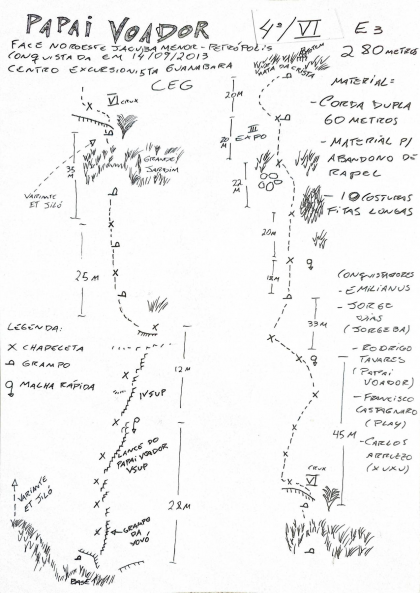 PAPAI VOADOR 4º/VI E3
FACE NOROESTE JACUBA MENOR - PETRÓPOLIS 280 METROS
CONQUISTADA EM 14/09/2013
CENTRO EXCURSIONISTA GUANABARA
CEG
BASTEM
MATA DA CRISTA
MATERIAL:
- CORDA DUPLA
60 METROS
- MATERIAL P/
ABANDONO DE
RAPEL
- 10 COSTURAS
FITAS LONGAS
VI CRUX
GRANDE
JARDIM
35 M
VARIANTE
ET JILÓ
25 M
20M
III
EXPO
20 M
22 M
20M
18M
33 M
45 M
CRUX
VI
CONQUISTADORES
- EMILIANUS
- JORGE
DIAS
(JORGEBA)
- RODRIGO
TAVARES
(PAPAI
VOADOR)
- FRANCISCO
CASTAGNARO
(PLAY)
- CARLOS
(XUXU)
LEGENDA:
X CHAPELETA
GRAMPO
MALHA RÁPIDA
12M
IVSUP
LANCE DO
PAPAI VOADOR
VSUP
28M
GRAMPO
DA
VOVÓ
VARIANTE
ET JILÓ
BASE